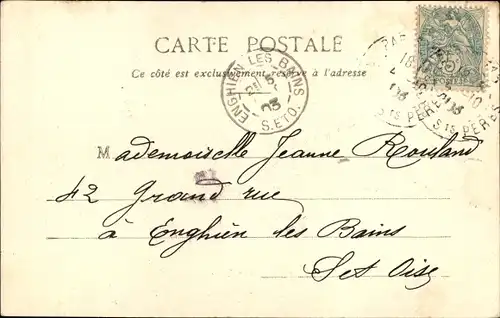 CARTE POSTALE
Ce côté est exclusivement réservé à l'adresse
ENGHIEN LES BAINS
03
S. ET O.
Sts PERES
Sts PERES
Mademoiselle Jeanne Rouland
42 Grand rue
à Enghien les Bains
S et Oise